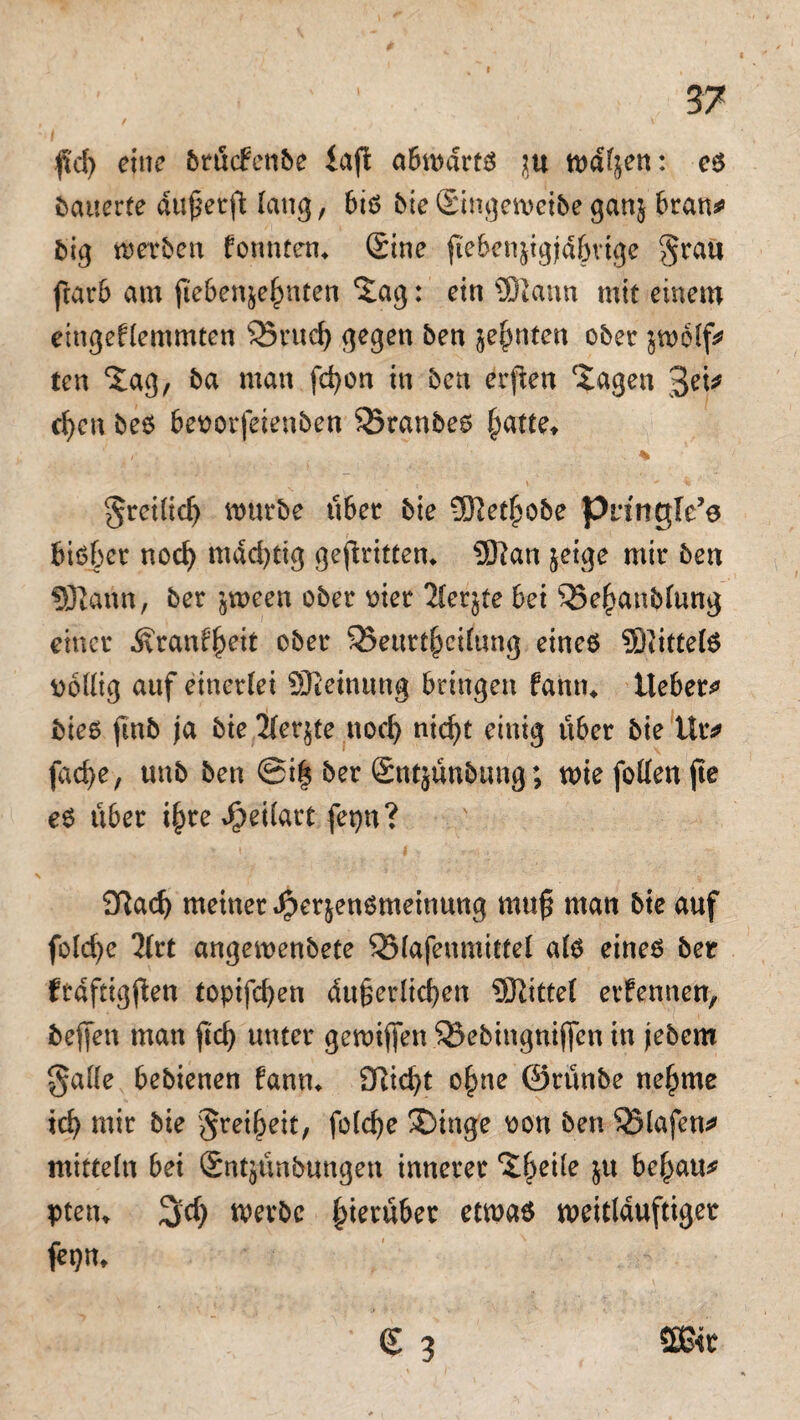 37
sich eine drückende Last abwärts zu wälzen: es
dauerte äußerst lang, bis die Eingeweide ganz bran⸗
dig werden konnten. Eine siebenzigjährige Frau
starb am siebenzehnten Tag: ein Mann mit einem
eingeklemmten Bruch gegen den zehnten oder zwölf⸗
ten Tag, da man schon in den ersten Tagen Zei⸗
chen des bevorseienden Brandes hatte.
Freilich wurde über die Methode Pringle's
bisher noch mächtig gestritten. Man zeige mir den
Mann, der zween oder vier Aerzte bei Behandlung
einer Krankheit oder Beurtheilung eines Mittels
völlig auf einerlei Meinung bringen kann. Ueber⸗
dies sind ja die Aerzte noch nicht einig über die Ur⸗
sache, und den Sitz der Entzündung; wie sollen sie
es über ihre Heilart seyn?
Nach meiner Herzensmeinung muß man die auf
solche Art angewendete Blasenmittel als eines der
kräftigsten topischen äußerlichen Mittel erkennen,
dessen man sich unter gewissen Bedingnissen in jedem
Falle bedienen kann. Nicht ohne Gründe nehme
ich mir die Freiheit, solche Dinge von den Blasen⸗
mitteln bei Entzündungen innerer Theile zu behau⸗
pten. Ich werde hierüber etwas weitläuftiger
seyn.
E 3 Wir